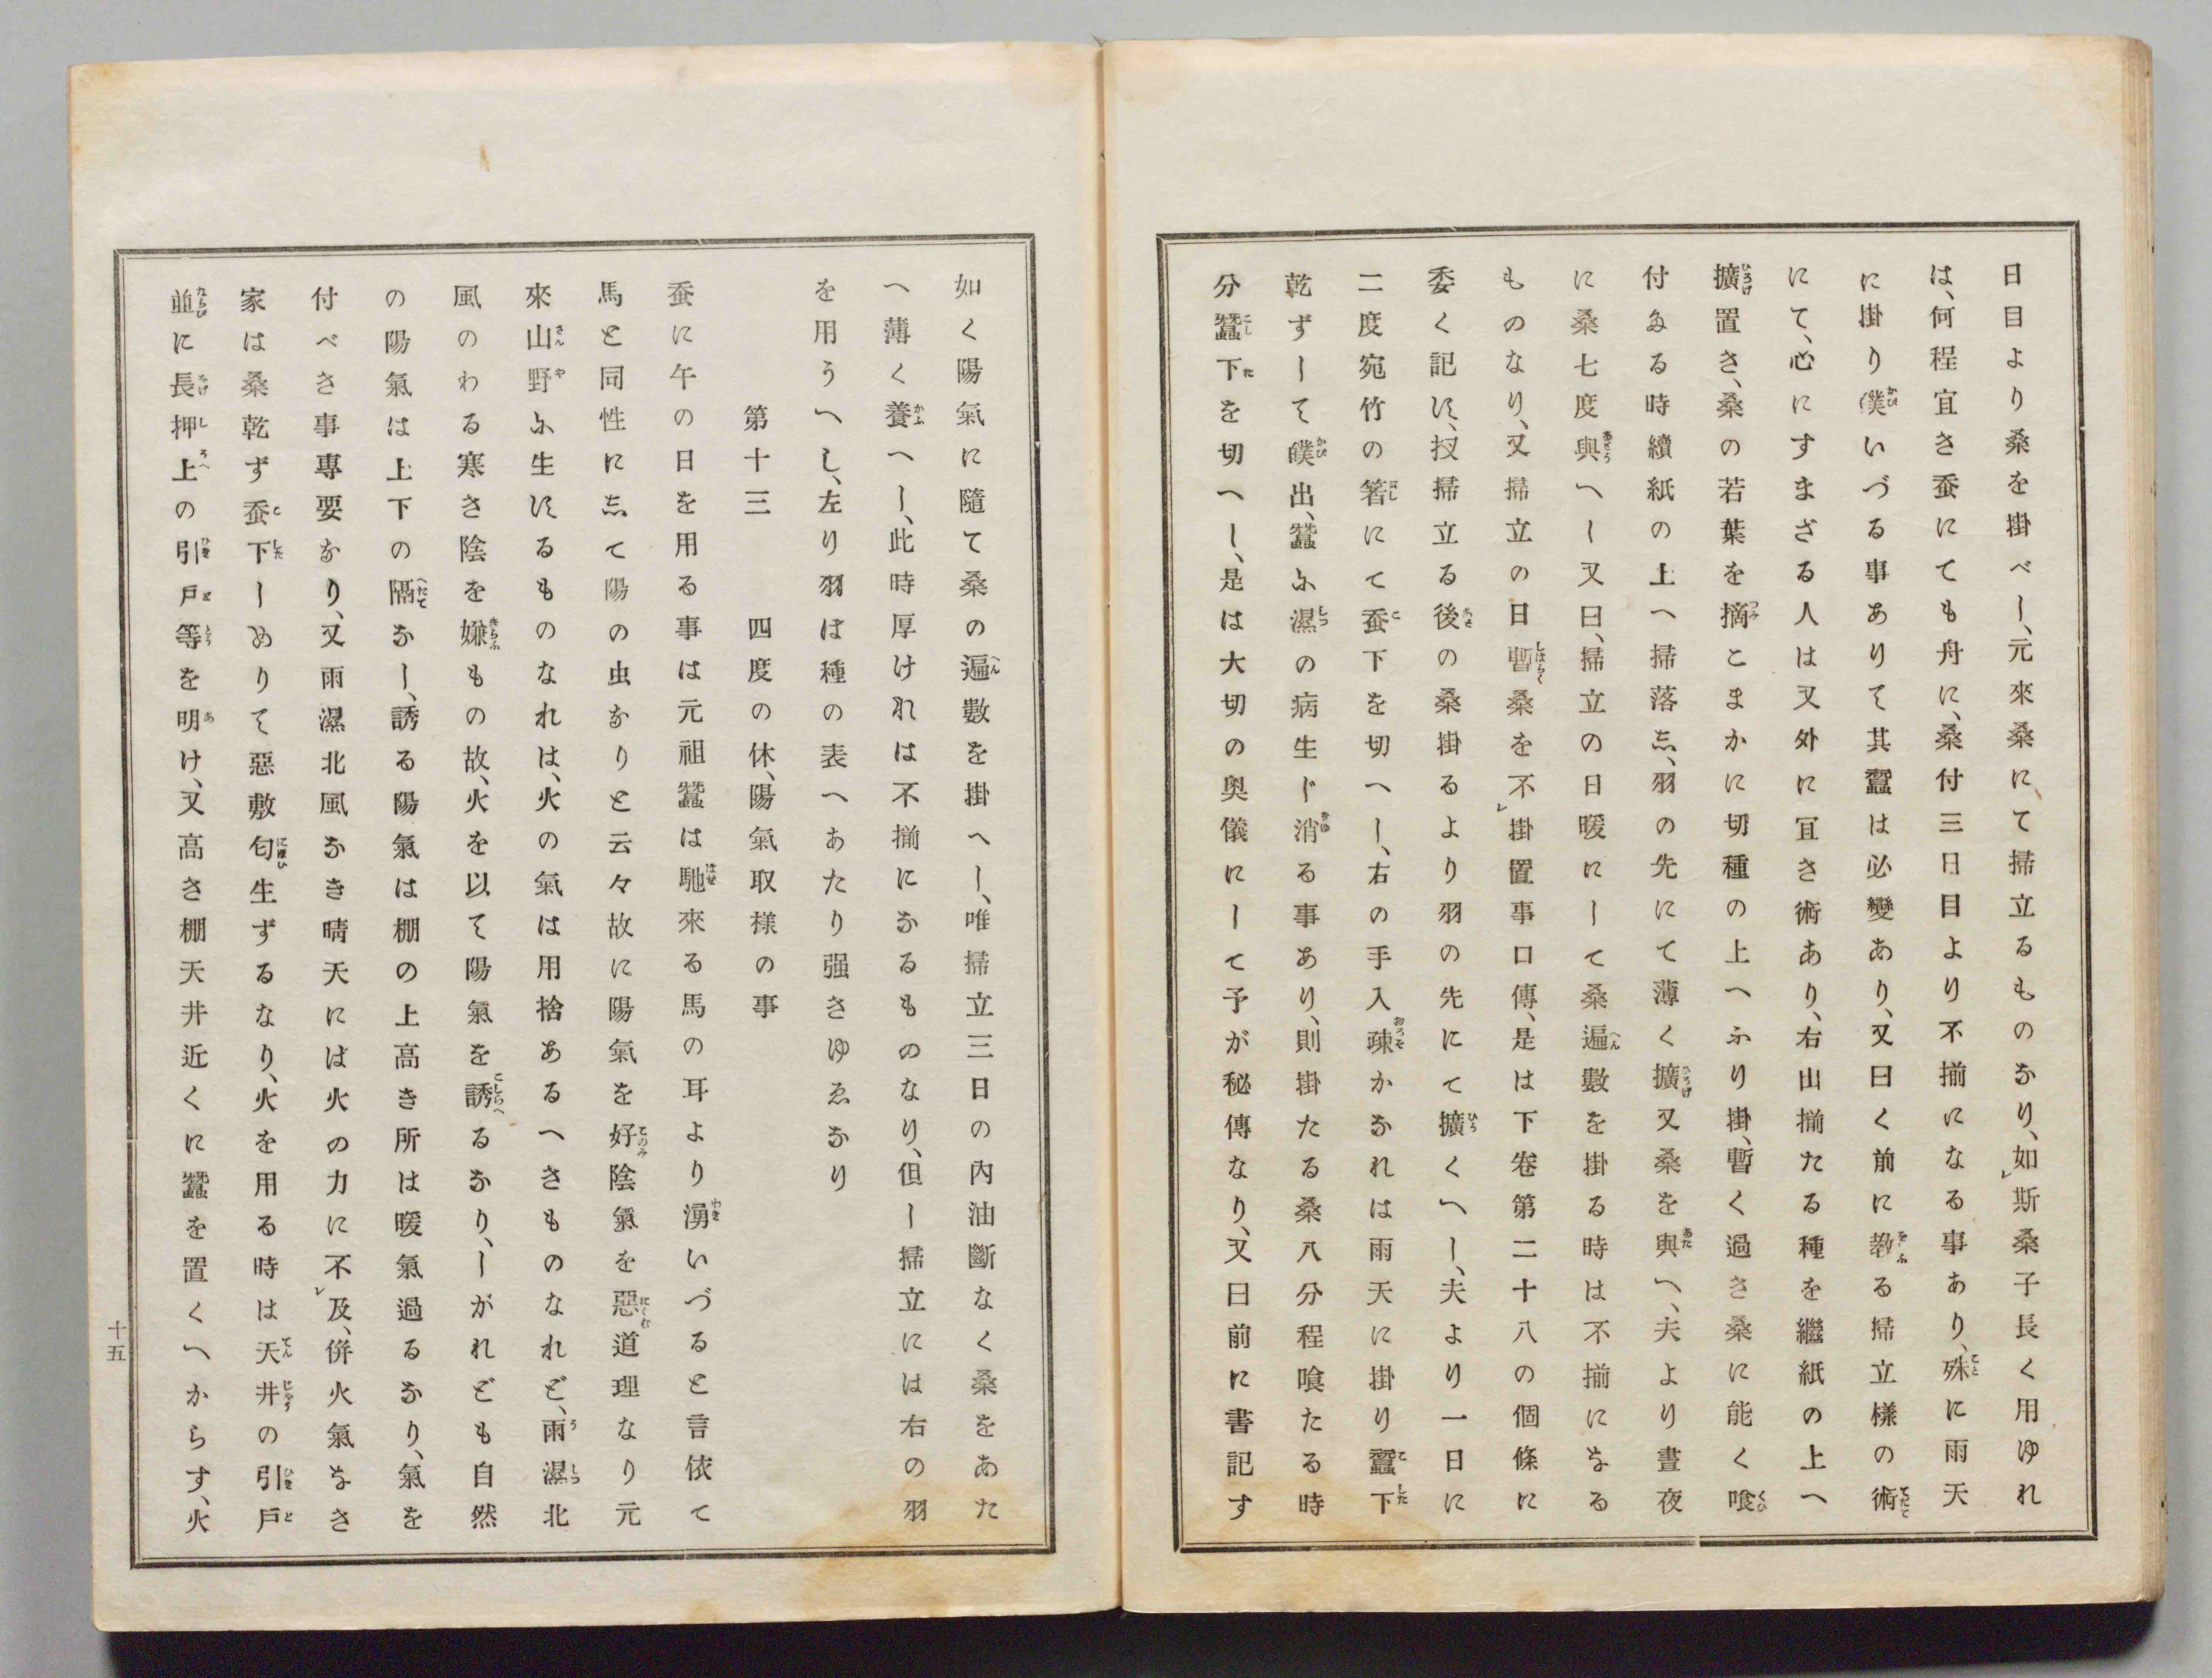 日目より桑を掛べし、元來桑にて掃立るものなり、如レ斯桑子長く用ゆれ
は、何程宜き蚕にても舟に、桑付三日目より不揃になる事あり、殊に雨天
に掛り僕いづる事ありて其蠶は必變あり、又曰く前に敎る掃立樣の術
にて、心にすまざる人は又外に宜き術あり、右山揃たる種を繼紙の上へ
擴置き、桑の若葉を摘こまかに切種の上へふり掛、暫く過き桑に能く喰
付たる時續紙の上へ掃落し、羽の先にて薄く擴又桑を與へ、夫より晝夜
に桑七度與へし又曰、掃立の日暖にして桑遍數を掛る時は不揃になる
ものなり、又掃立の日暫桑を不レ掛置事口傳、是は下卷第二十八の個條に
委く記す、扨掃立る後の桑掛るより羽の先にて擴くへし、夫より一日に
二度宛竹の箸にて蚕下を切へし、右の手入疎かなれは雨天に掛り蠶下
乾ずして醭出、蠶に濕の病生じ消る事あり、則掛たる桑八分程喰たる時
分蠶下を切へし、是は大切の奥儀にして予が秘傳なり、又曰前に書記す
如く陽氣に隨て桑の遍數を掛へし、唯掃立三日の內油斷なく桑をあた
へ薄く養へし、此時厚けれは不揃になるものなり、但し掃立には右の羽
を用うへし、左り羽は種の表へあたり强きゆゑなり
第十三　四度の休、陽氣取樣の事
蚕に午の日を用る事は元祖蠶は馳來る馬の耳より湧いづると言依て
馬と同性にして陽の虫なりと云々故に陽氣を好陰氣を惡道理なり元
來山野に生するものなれは、火の氣は用捨あるへきものなれど、雨濕北
風のわる寒き陰を嫌もの故、火を以て陽氣を誘るなり、しがれども自然
の陽氣は上下の隔なし、誘る陽氣は棚の上高き所は暖氣過るなり、氣を
付べき事專要なり、又雨濕北風なき晴天には火の力に不レ及、併火氣なき
家は桑乾ず蚕下しめりて惡敷匂生ずるなり、火を用る時は天井の引戸
並に長押上の引戸等を明け、又高き棚天井近くに蠶を置くへからす、火
十五